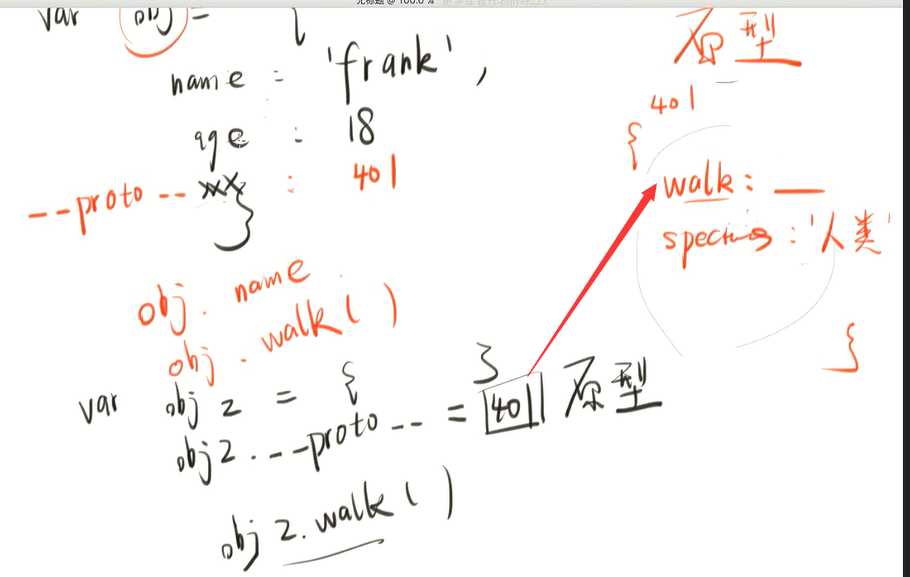 var obj = {
原型
name : 'frank',
401
age : 18
{
--proto-- xxx : 401
walk : __
}
人类'
obj. name
obj . walk ( )
}
var obj 2 = { }
obj2 . --proto-- = 401 原型
obj 2. walk ( )